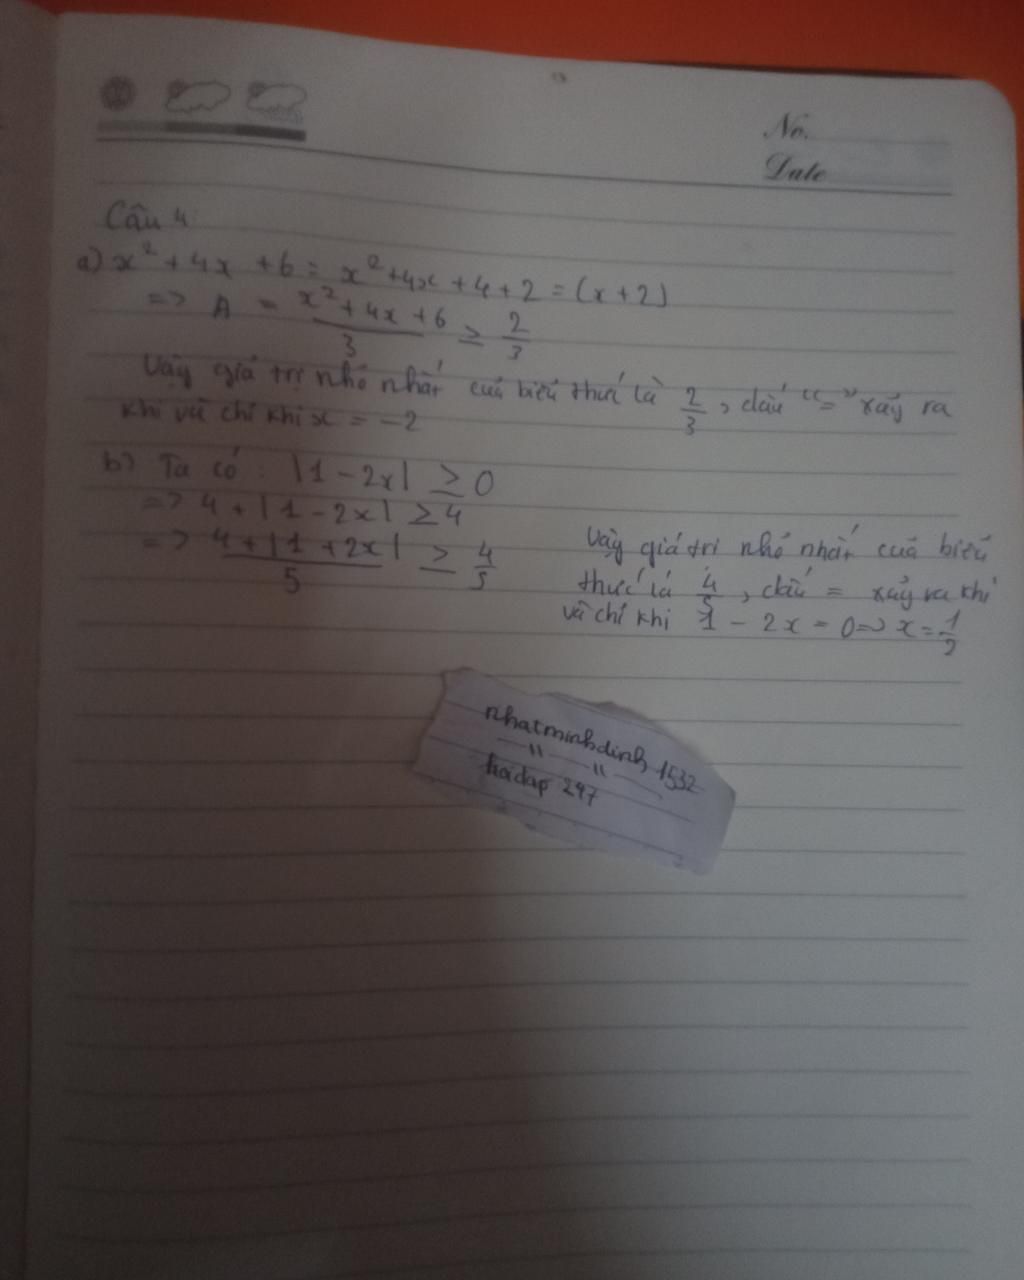 No.
Date
Câu 4:
a) x² + 4x + 6 = x² + 4x + 4 + 2 = (x + 2)
=> A = \frac{x² + 4x + 6}{3} ≥ \frac{2}{3}
Vậy giá trị nhỏ nhất của biểu thức là \frac{2}{3}, dấu "=" xảy ra
khi và chỉ khi x = -2
b) Ta có: |1 - 2x| ≥ 0
=> 4 + |1 - 2x| ≥ 4
=> \frac{4 + |1 + 2x|}{5} ≥ \frac{4}{5}
Vậy giá trị nhỏ nhất của biểu
thức là \frac{4}{5}, dấu = xảy ra khi
và chỉ khi 1 - 2x = 0 => x = \frac{1}{2}
nhatminhdinh1532
hoidap247